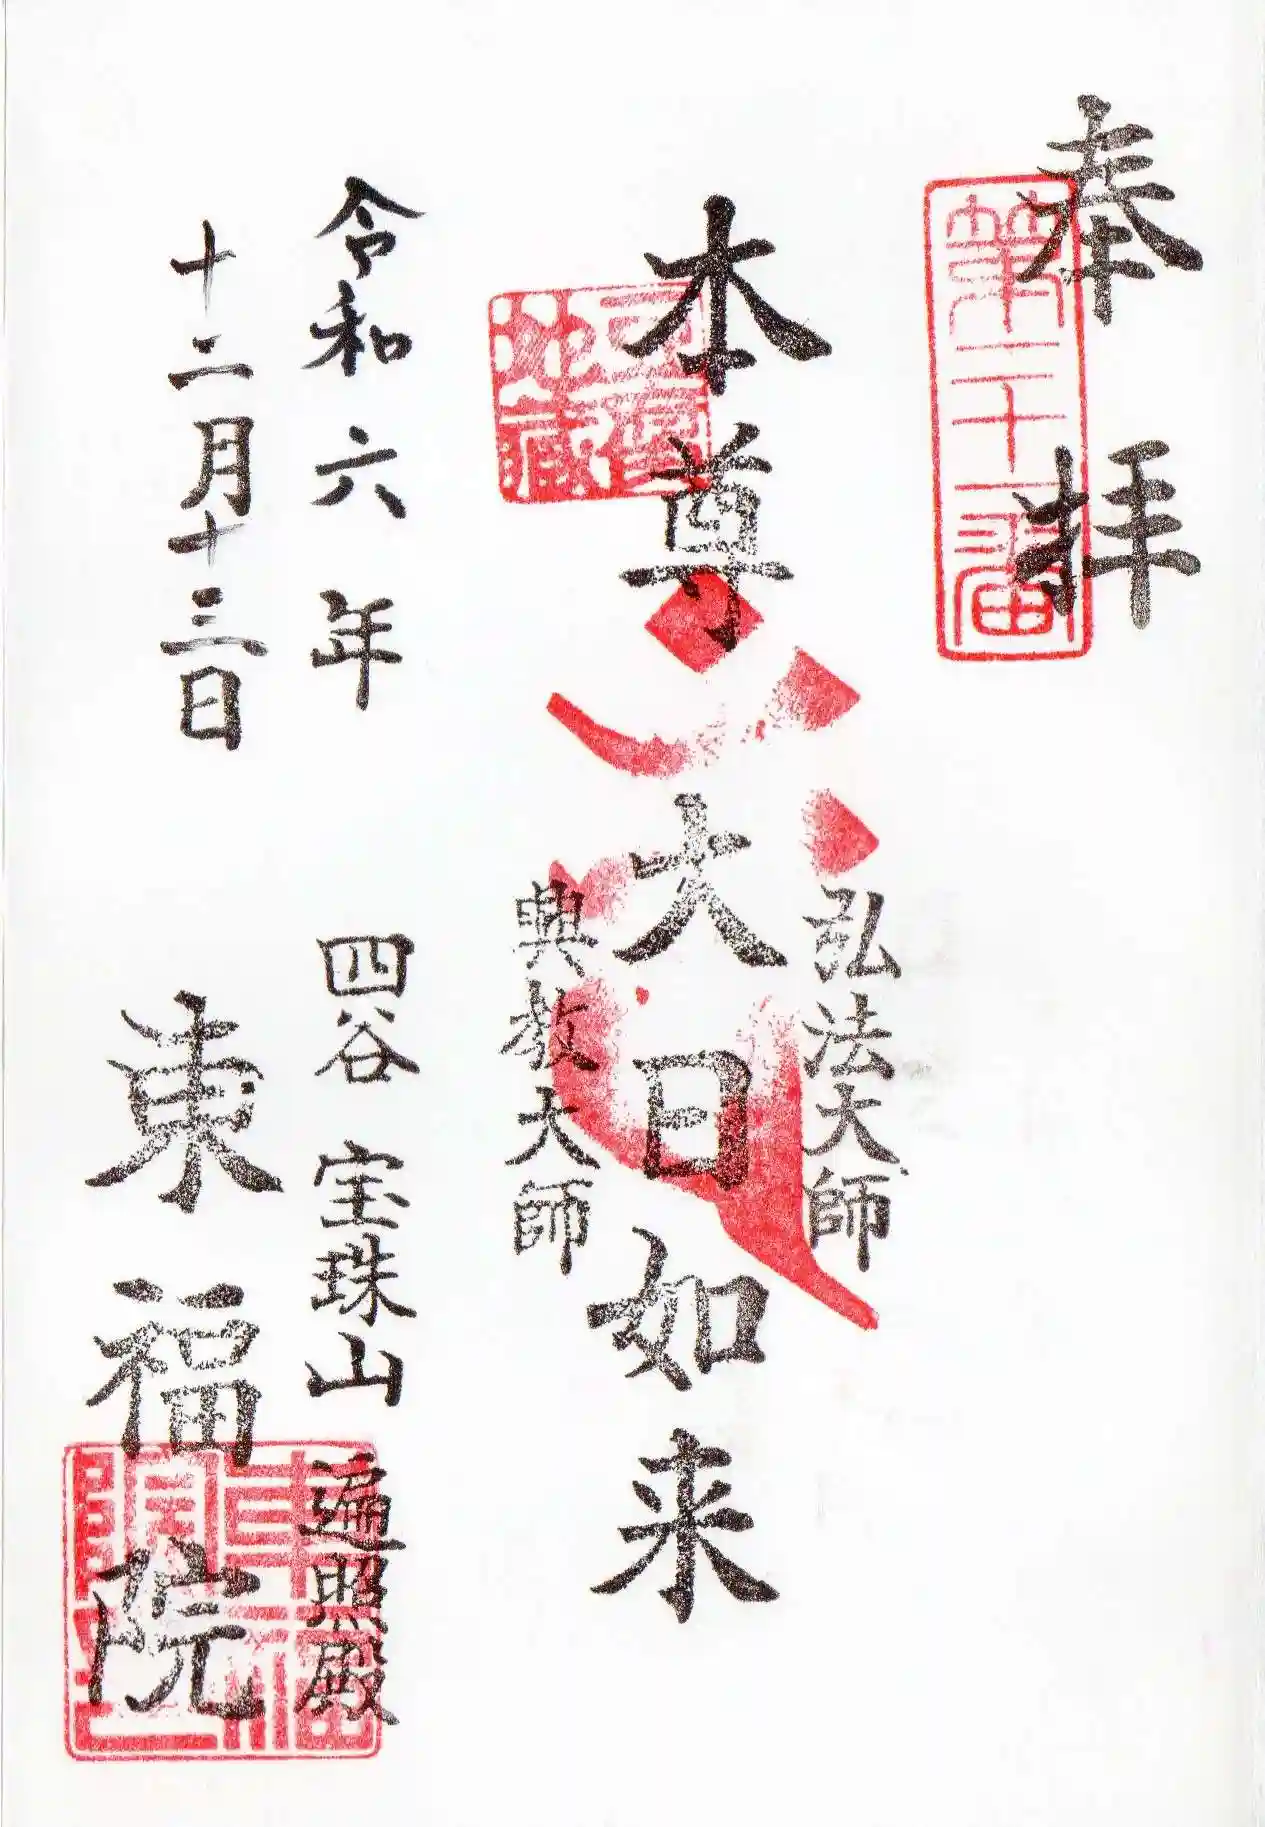 奉拝
第二十一番
本尊 大日如来
弘法大師
興教大師
地蔵
令和六年
十二月十三日
四谷 宝珠山 遍照殿
東福院